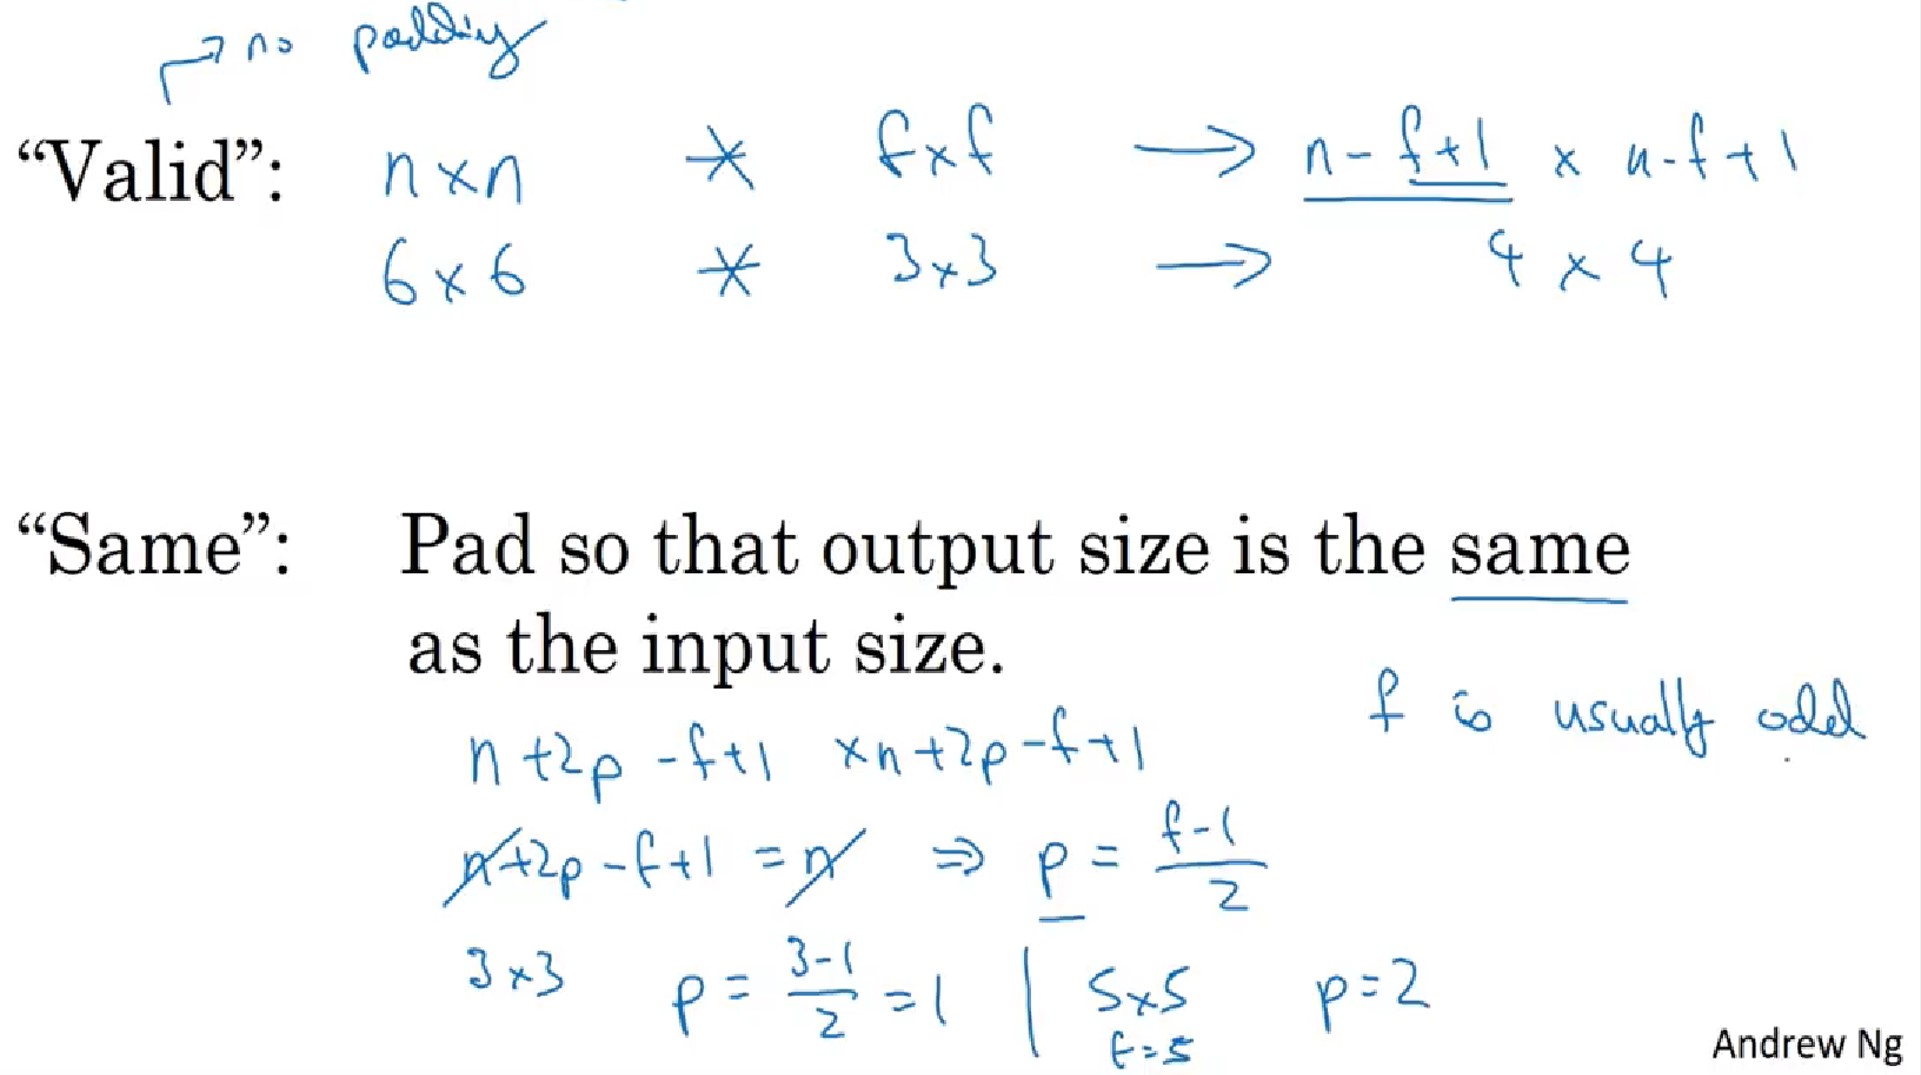 → no padding
“Valid”: n×n * f×f → n-f+1 × n-f+1
6×6 * 3×3 → 4×4
“Same”: Pad so that output size is the same
as the input size.
f is usually odd
n+2p-f+1 ×n+2p-f+1
n+2p-f+1 = n ⇒ p = f-1/2
3×3 p = 3-1/2 = 1 | 5×5 p=2
f=5
Andrew Ng